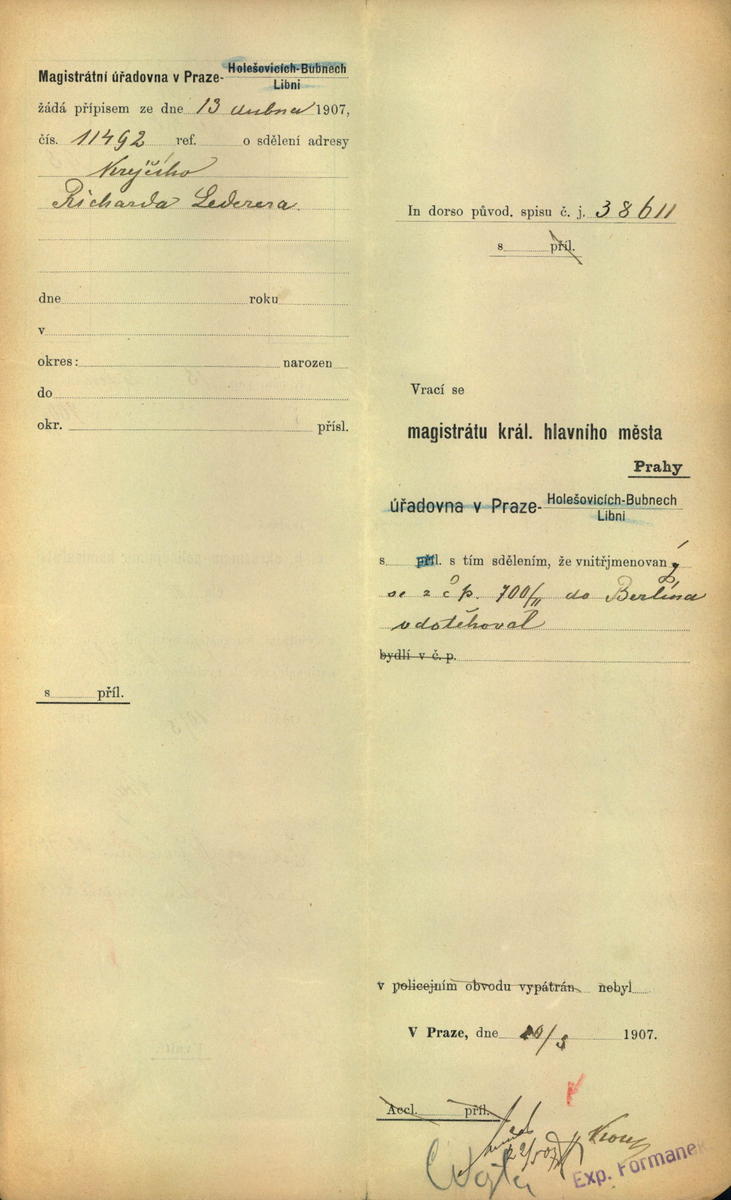 Magistrátní úřadovna v Praze- Holešovicích-Bubnech
Libni
žádá přípisem ze dne 13 dubna 1907,
čís. 11492 ref. o sdělení adresy
Krejčího
Richarda Lederera
dne roku
v
okres: narozen
do
okr. přísl.
s příl.
In dorso původ. spisu č. j. 38611
s příl.
Vrací se
magistrátu král. hlavního města
Prahy
úřadovna v Praze- Holešovicích-Bubnech
Libni
s příl. s tím sdělením, že vnitřjmenovaný
se z čp. 700/II do Berlína
odstěhoval
bydlí v č. p.
v policejním obvodu vypátrán nebyl
V Praze, dne /5 1907.
Accl. příl.
Exp. Formanek